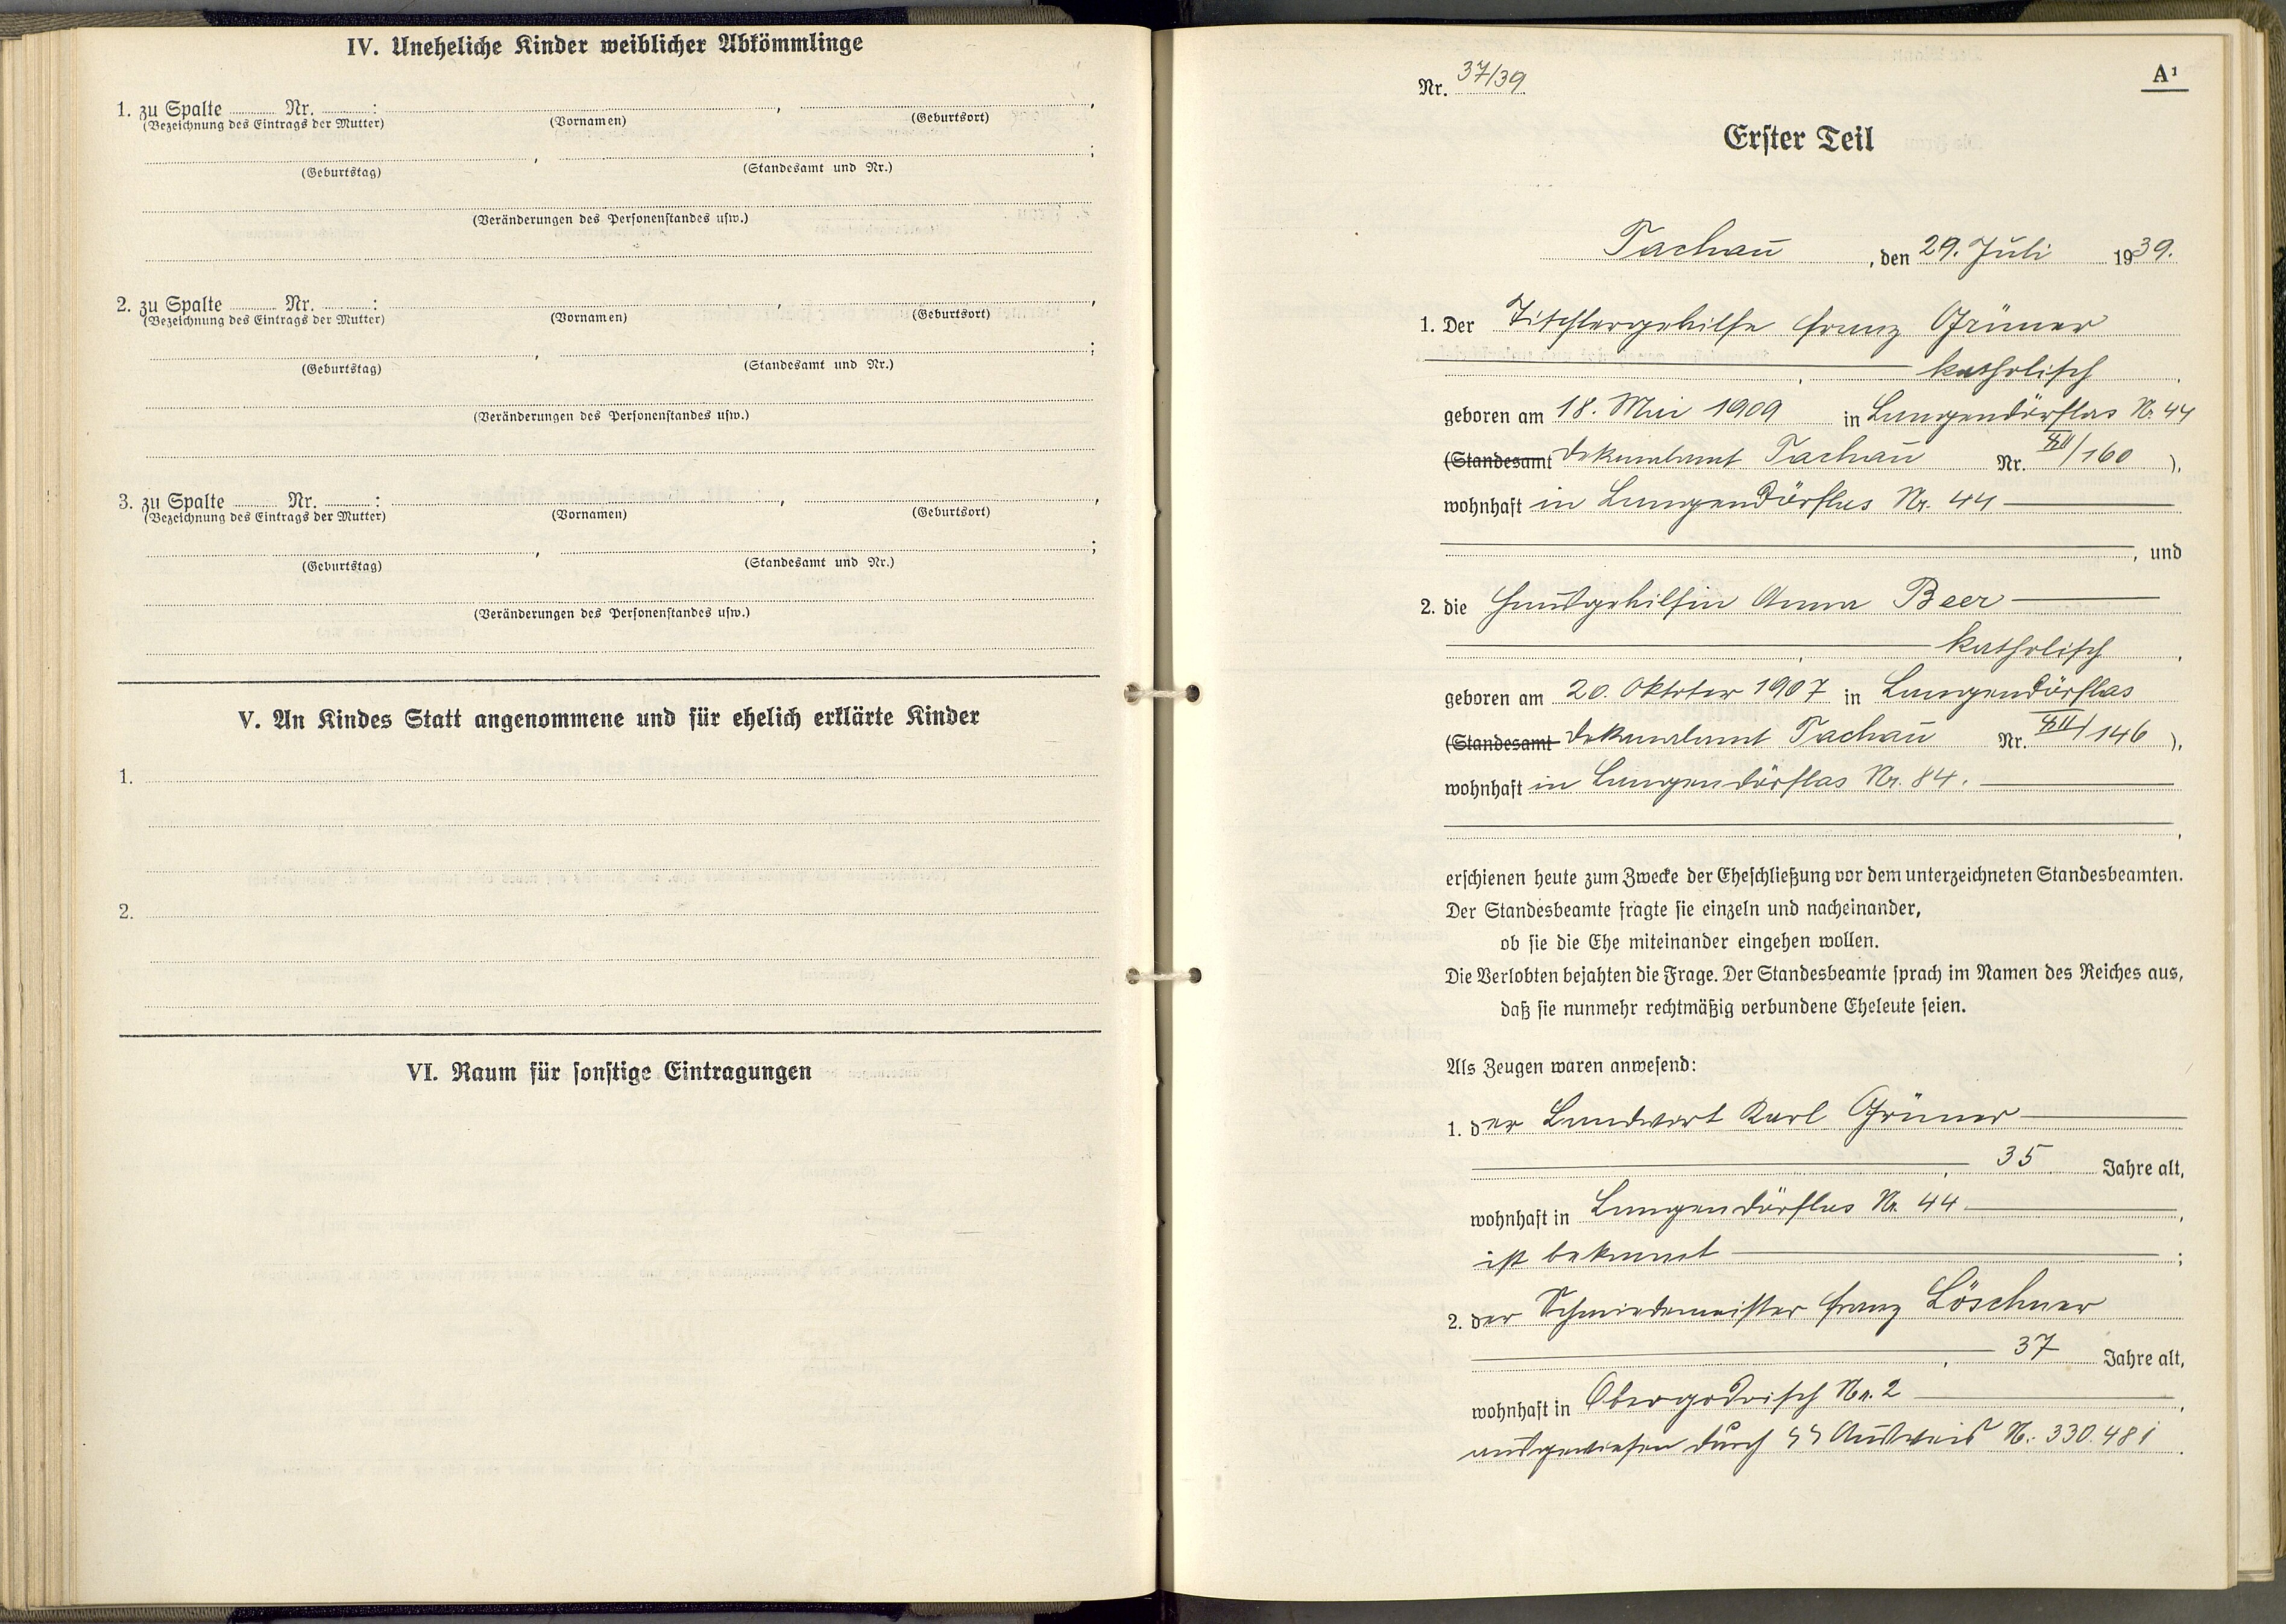 IV. Uneheliche Kinder weiblicher Abkömmlinge
1. zu Spalte ........ Nr. ........ : ........ , ........ ,
(Bezeichnung des Eintrags der Mutter) (Vornamen) (Geburtsort)
........ , ........ ;
(Geburtstag) (Standesamt und Nr.)
(Veränderungen des Personenstandes usw.)
2. zu Spalte ........ Nr. ........ : ........ , ........ ,
(Bezeichnung des Eintrags der Mutter) (Vornamen) (Geburtsort)
........ , ........ ;
(Geburtstag) (Standesamt und Nr.)
(Veränderungen des Personenstandes usw.)
3. zu Spalte ........ Nr. ........ : ........ , ........ ,
(Bezeichnung des Eintrags der Mutter) (Vornamen) (Geburtsort)
........ , ........ ;
(Geburtstag) (Standesamt und Nr.)
(Veränderungen des Personenstandes usw.)
V. An Kindes Statt angenommene und für ehelich erklärte Kinder
1.
2.
VI. Raum für sonstige Eintragungen
A¹
Nr. 37/39
Erster Teil
Tachau, den 29. Juli 1939.
1. Der Tischlergehilfe Franz Grüner
katholisch
geboren am 18. Mai 1909 in Langendörflas Nr. 44
(Standesamt Dekanalamt Tachau Nr. /160 ),
wohnhaft in Langendörflas Nr. 44
, und
2. die Hausgehilfin Anna Beer
katholisch
geboren am 20. Oktober 1907 in Langendörflas
(Standesamt Dekanalamt Tachau Nr. /146 ),
wohnhaft in Langendörflas Nr. 84.
erschienen heute zum Zwecke der Eheschließung vor dem unterzeichneten Standesbeamten.
Der Standesbeamte fragte sie einzeln und nacheinander,
ob sie die Ehe miteinander eingehen wollen.
Die Verlobten bejahten die Frage. Der Standesbeamte sprach im Namen des Reiches aus,
daß sie nunmehr rechtmäßig verbundene Eheleute seien.
Als Zeugen waren anwesend:
1. der Landwirt Karl Grüner
35 Jahre alt,
wohnhaft in Langendörflas Nr. 44
ist bekannt ;
2. der Schmiedemeister Franz Löschner
37 Jahre alt,
wohnhaft in Obergodrisch Nr. 2
ausgewiesen durch SS Ausweis Nr. 330.481.